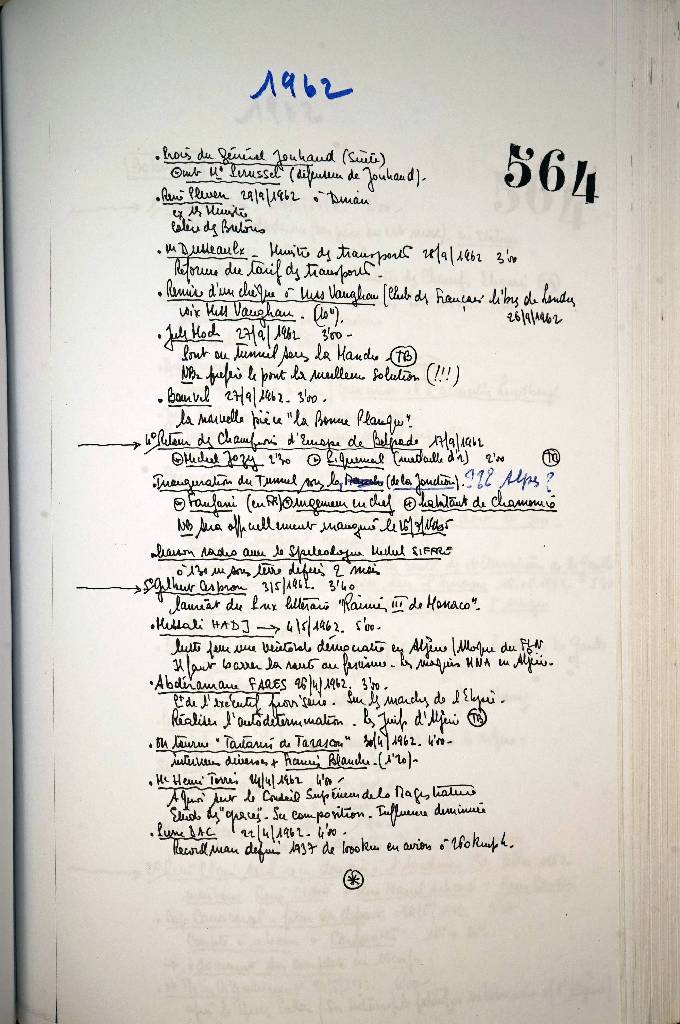 1962
564
• Procès du Général Jouhaud (suite)
Me Perussel (défenseur de Jouhaud).
• René Pleven 29/9/1962 à Dinan
ex 1er Ministre
Galère des Bretons
• M Dusseaulx - Ministre des transports 28/9/1962 3'00
Réforme du tarif des transports -
• Remise d'un chèque à Miss Vaughan (Club des Français libres de Londres
voix Miss Vaughan. (10"). 26/9/1962
• Jules Moch 27/9/1962 3'00 -
Pont ou tunnel sous la Manche (TB)
NB: préfère le pont la meilleure solution (!!!)
• Bourvil - 27/9/1962 - 3'00 -
la nouvelle pièce "la Bonne Planque".
4° Retour des Champions d'Europe de Belgrade 17/9/1962
Michel Jazy 2'30 Piquemal (médaille d'or) 2'00
• Inauguration du Tunnel sous les (de la Jonction). ??? Alpes ?
Fanfani (en FR) ingénieur en chef + habitant de Chamonix
NB sera officiellement inauguré le 16/7/1965
• Liaison radio avec le Spéléologue Michel SIFFRE
à 130 m sous terre depuis 2 mois
5° Gilbert Cesbron 3/5/1962 - 3'40
lauréat du Prix littéraire "Rainier III de Monaco".
• Messali HADJ → 4/5/1962 - 5'00 -
lutte pour une véritable démocratie en Algérie / Moque du FLN
Il faut barrer la route au fascisme - les maquis MNA en Algérie -
• Abderamane FARES 26/4/1962 - 3'30 -
Pt de l'exécutif provisoire - Sur les marches de l'Elysée -
Réaliser l'autodétermination - Les Juifs d'Algérie (TB)
• On tourne "Tartarin de Tarascon" 30/4/1962 - 4'00 -
interviews diverses + Francis Blanche - (1'20) -
• Me Henri Torrès 24/4/1962 4'00 -
A quoi sert le Conseil Supérieur de la Magistrature
Etude des "grâces" - Sa composition - Influence diminuée
• Pierre DAC 22/4/1962 - 4'00 -
Recordman depuis 1937 de 1000 km en avion à 260 km/h.